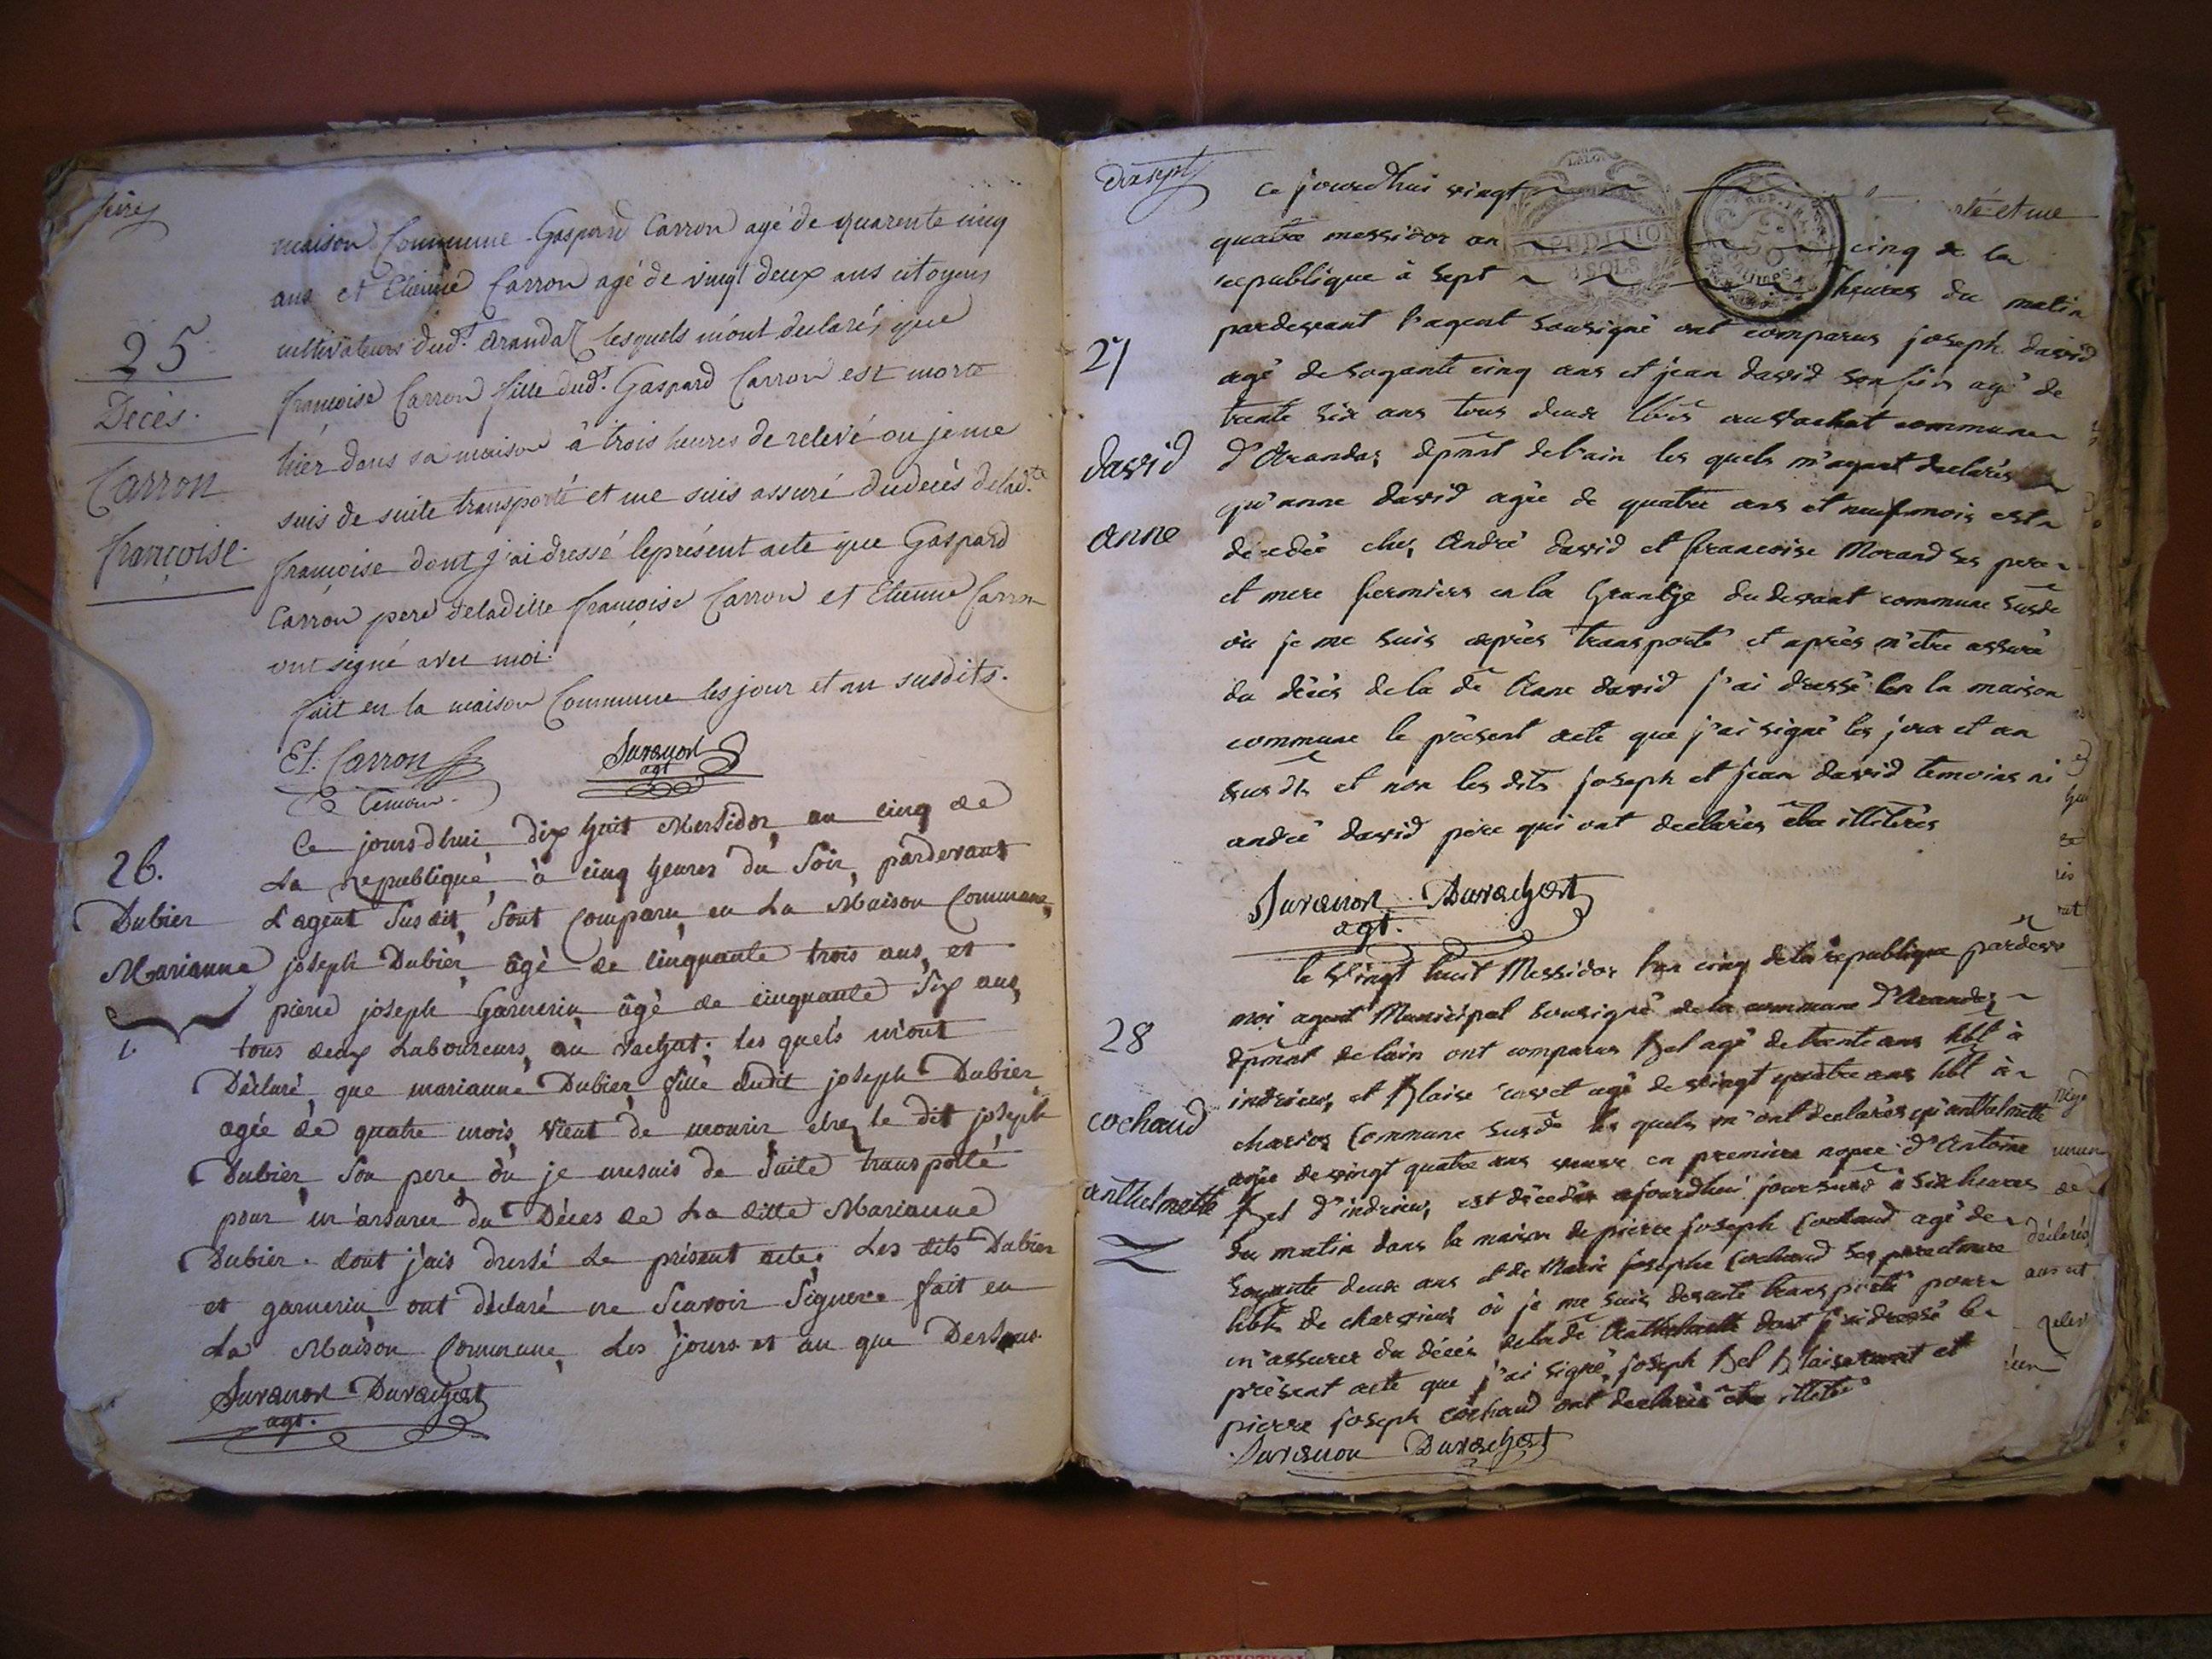 seize
maison Commune Gaspard Carron agé de quarente cinq
ans et Etienne Carron agé de vingt deux ans citoyens
cultivateurs dud.t arandaz lesquels m'ont declaré, que
françoise Carron fille dud.t Gaspard Carron est morte
hier dans sa maison à trois heures de relevé ou je me
suis de suite transporté et me suis assuré du decès de lad.te
françoise dont j'ai dressé le présent acte que Gaspard
Carron pere de ladille françoise Carron et Etienne Carron
ont signé avec moi.
fait en la maison Commune les jour et an susdits.
25
Decès.
Carron
françoise.
Et. Carron
Temoin.
Juvanon
agt
Ce jours d'hui dix huit Messidor, an cinq de
La republique, à cinq heures du soir, pardevant
L'agent susdit, sont comparu, en La Maison Commune,
joseph Dubier, âgé de cinquante trois ans, et
pierre joseph Garnerin âgé de cinquante six ans,
tous deux Laboureurs, au vachat; les quels m'ont
Déclaré, que marianne Dubier, fille dudit joseph Dubier,
agée de quatre mois, vient de mourir chez le dit joseph
Dubier, son pere où je me suis de suite transporté
pour m'assurer du Déces de La ditte Marianne
Dubier. dont j'ais dressé Le présent acte; Les dits Dubier
et garnerin ont déclaré ne scavoir signer. fait en
La Maison Commune, Les jours et an que Dessus.
26.
Dubier
Marianne
1.
Juvanon Duvachat
agt.
dixsept
Ce jourdhui vingt
quatre messidor an cinq de la
republique à sept heures du matin
pardevant l'agent sousigné ont comparus joseph david
agé de soyante cinq ans et jean david son fils agé de
trente six ans tous deux au vachat commune
d'Arandas, dpmnt de l'ain les quels m'ayant declarés
qu'anne david agée de quatre ans et neuf mois est
décedée chez André david et francoise Morand ses pere
et mere fermiers en la Grantge du devant commune susde
où je me suis après transporté et après m'etre assuré
du décès de la de Anne david j'ai dressé en la maison
commune le présent acte que j'ai signé les jour et an
susdts et non les dits joseph et jean david temoins ni
andré david père qui ont declarés etre illiterés
27
david
anne
Juvanon Duvachat
agt.
le vingt huit Messidor l'an cinq de la republique pardev
moi agent Municipal sousigné de la commune d'Arandas
dpmnt de lain ont comparus Bel agé de trente ans hbt à
indrieu, et Blaise agé de vingt quatre ans hbt à
Commune susde les quels m'ont declarés qu'anthelmette
agée de vingt quatre ans veuve en premiere nopce d'Antoine
Bel d'indrieu, est décedée ajourdhui jour susd à six heures
du matin dans la maison de pierre joseph Cochaud agé de
soyante deux ans et de Marie josephe Cochaud ses pere et mere
hbts de charvieux où je me suis desuite transporté pour
m'assurer du décès de la de Anthelmette dont j'ai dressé le
présent acte que j'ai signé, joseph Bel Blaise et
pierre joseph Cochaud ont declarés etre illité
28
cochaud
anthelmette
Juvanon Duvachat